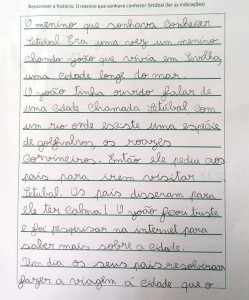 Reescrever a história: O menino que sonhava conhecer Setúbal (ler as indicações)
O menino que sonhava conhecer
Setúbal. Era uma vez um menino
chamado joão que vivia em
uma cidade longe do mar.
O joão tinha ouvido falar de
uma cidade chamada Setúbal com
um rio onde existe uma espécie
de golfinhos, os roazes
corvineiros. Então ele pediu aos
pais para irem visitar
Setúbal. Os pais disseram para
ele ter calma! O joão ficou triste
e foi pesquisar na internet para
saber mais sobre a cidade.
Um dia os seus pais resolveram
fazer a viagem á cidade que o